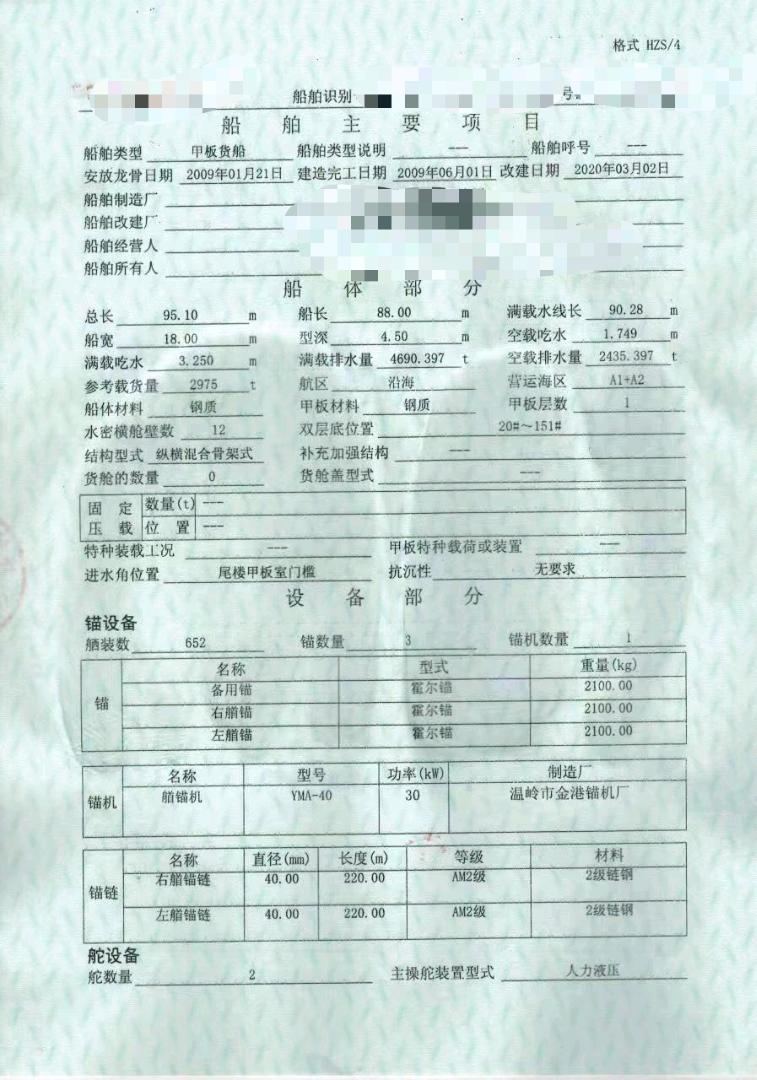 格式 HZS/4
船舶识别 号
船舶主要项目
船舶类型 甲板货船 船舶类型说明 --- 船舶呼号 ---
安放龙骨日期 2009年01月21日 建造完工日期 2009年06月01日 改建日期 2020年03月02日
船舶制造厂
船舶改建厂
船舶经营人
船舶所有人
船体部分
总长 95.10 m 船长 88.00 m 满载水线长 90.28 m
船宽 18.00 m 型深 4.50 m 空载吃水 1.749 m
满载吃水 3.250 m 满载排水量 4690.397 t 空载排水量 2435.397 t
参考载货量 2975 t 航区 沿海 营运海区 A1+A2
船体材料 钢质 甲板材料 钢质 甲板层数 1
水密横舱壁数 12 双层底位置 20#~151#
结构型式 纵横混合骨架式 补充加强结构 ---
货舱的数量 0 货舱盖型式 ---
固定 数量(t) ---
压载 位置 ---
特种装载工况 --- 甲板特种载荷或装置 ---
进水角位置 尾楼甲板室门槛 抗沉性 无要求
设备部分
锚设备
舾装数 652 锚数量 3 锚机数量 1
名称 型式 重量(kg)
锚 备用锚 霍尔锚 2100.00
右艏锚 霍尔锚 2100.00
左艏锚 霍尔锚 2100.00
名称 型号 功率(kW) 制造厂
锚机 艏锚机 YMA-40 30 温岭市金港锚机厂
名称 直径(mm) 长度(m) 等级 材料
锚链 右艏锚链 40.00 220.00 AM2级 2级链钢
左艏锚链 40.00 220.00 AM2级 2级链钢
舵设备
舵数量 2 主操舵装置型式 人力液压